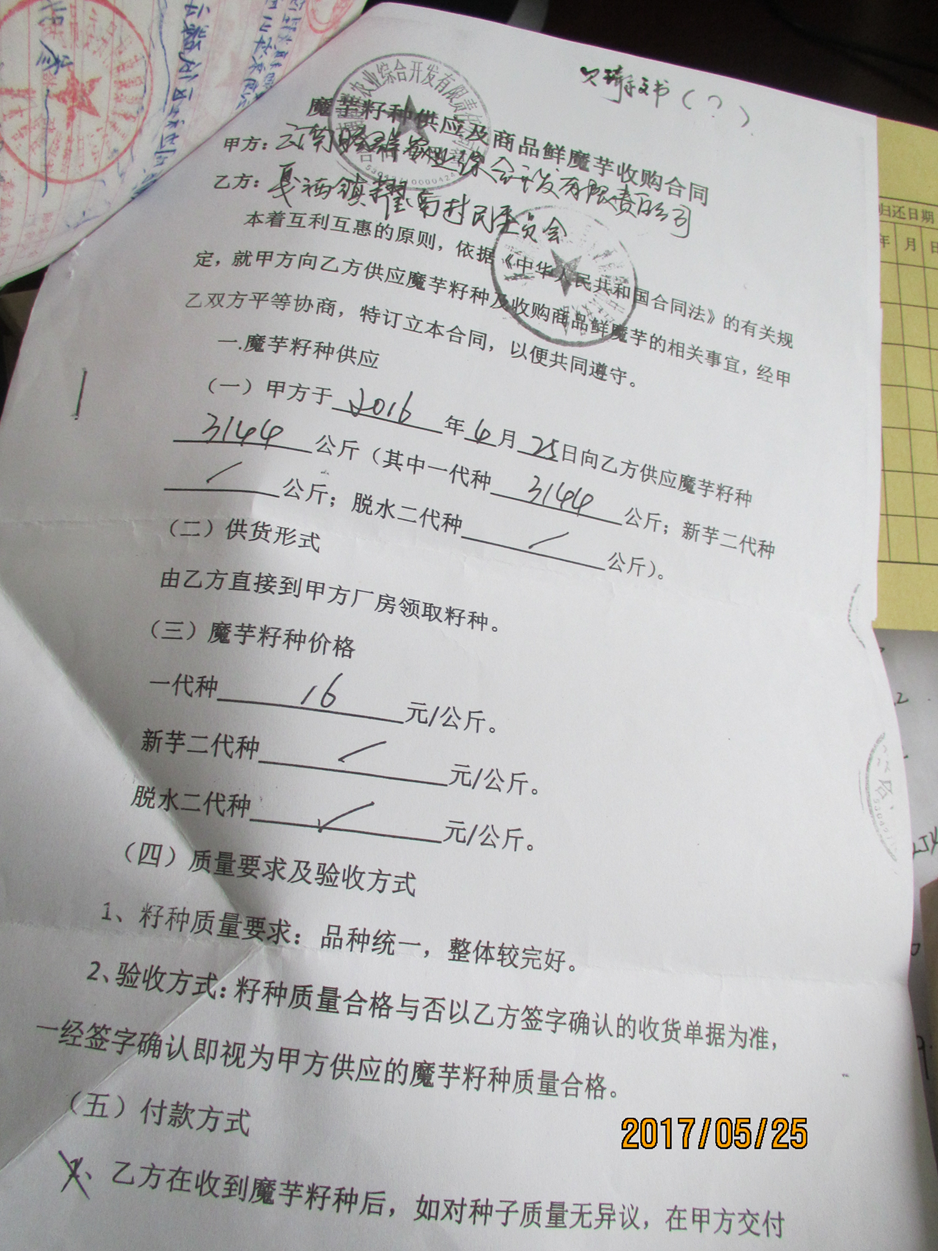 欠骑手文书（？）.
魔芋籽种供应及商品鲜魔芋收购合同
甲方：云南 农业综合开发有限责任公司
乙方：戛洒镇耀南村民委员会
本着互利互惠的原则，依据《中华人民共和国合同法》的有关规
定，就甲方向乙方供应魔芋籽种及收购商品鲜魔芋的相关事宜，经甲
乙双方平等协商，特订立本合同，以便共同遵守。
一.魔芋籽种供应
（一）甲方于2016年6月25日向乙方供应魔芋籽种
3144公斤（其中一代种3144公斤；新芋二代种
/公斤；脱水二代种/公斤）。
（二）供货形式
由乙方直接到甲方厂房领取籽种。
（三）魔芋籽种价格
一代种16元/公斤。
新芋二代种/元/公斤。
脱水二代种/元/公斤。
（四）质量要求及验收方式
1、籽种质量要求：品种统一，整体较完好。
2、验收方式：籽种质量合格与否以乙方签字确认的收货单据为准，
一经签字确认即视为甲方供应的魔芋籽种质量合格。
（五）付款方式
乙方在收到魔芋籽种后，如对种子质量无异议，在甲方交付
归还日期
年 月 日
农业综合开发有限责任
2017/05/25